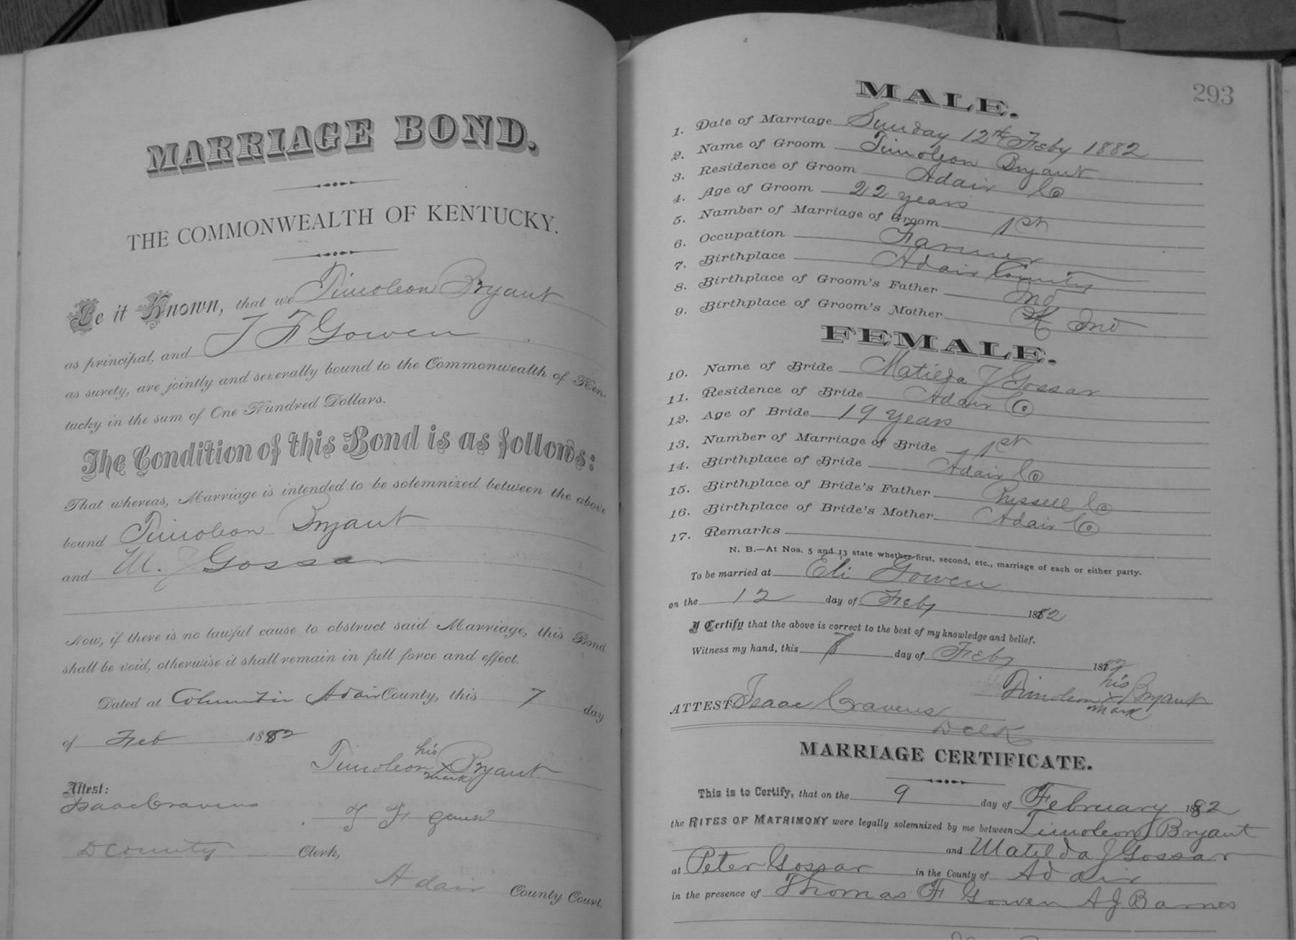 MARRIAGE BOND.
THE COMMONWEALTH OF KENTUCKY.
Be it Known, that we Timoleon Bryant
as principal, and T F Gowen
as surety, are jointly and severally bound to the Commonwealth of Ken-
tucky in the sum of One Hundred Dollars.
The Condition of this Bond is as follows:
That whereas, Marriage is intended to be solemnized between the above
bound Timoleon Bryant
and M. J Gossar
Now, if there is no lawful cause to obstruct said Marriage, this Bond
shall be void, otherwise it shall remain in full force and effect.
Dated at Columbia Adair County, this 7 day
of Feb 1882
his
Timoleon x Bryant
mark
Attest:
Isaac Cravens
T F
D County Clerk,
Adair County Court.
293
MALE.
1. Date of Marriage Sunday 12th Feby 1882
2. Name of Groom Timoleon Bryant
3. Residence of Groom Adair Co
4. Age of Groom 22 years
5. Number of Marriage of Groom 1st
6. Occupation Farmer
7. Birthplace Adair County
8. Birthplace of Groom's Father
9. Birthplace of Groom's Mother
FEMALE.
10. Name of Bride Matilda J Gossar
11. Residence of Bride Adair Co
12. Age of Bride 19 years
13. Number of Marriage of Bride 1st
14. Birthplace of Bride Adair Co
15. Birthplace of Bride's Father Russell Co
16. Birthplace of Bride's Mother Adair Co
17. Remarks
N. B.—At Nos. 5 and 13 state whether first, second, etc., marriage of each or either party.
To be married at Eli Gowen
on the 12 day of Feby 1882
I Certify that the above is correct to the best of my knowledge and belief.
Witness my hand, this 7 day of Feby 187
his
Timoleon x Bryant
mark
ATTEST Isaac Cravens
D Clk
MARRIAGE CERTIFICATE.
This is to Certify, that on the 9 day of February 1882
the RITES OF MATRIMONY were legally solemnized by me between Timoleon Bryant
and Matilda J Gossar
at Peter Gossar in the County of Adair
in the presence of Thomas F Gowen A J Barnes